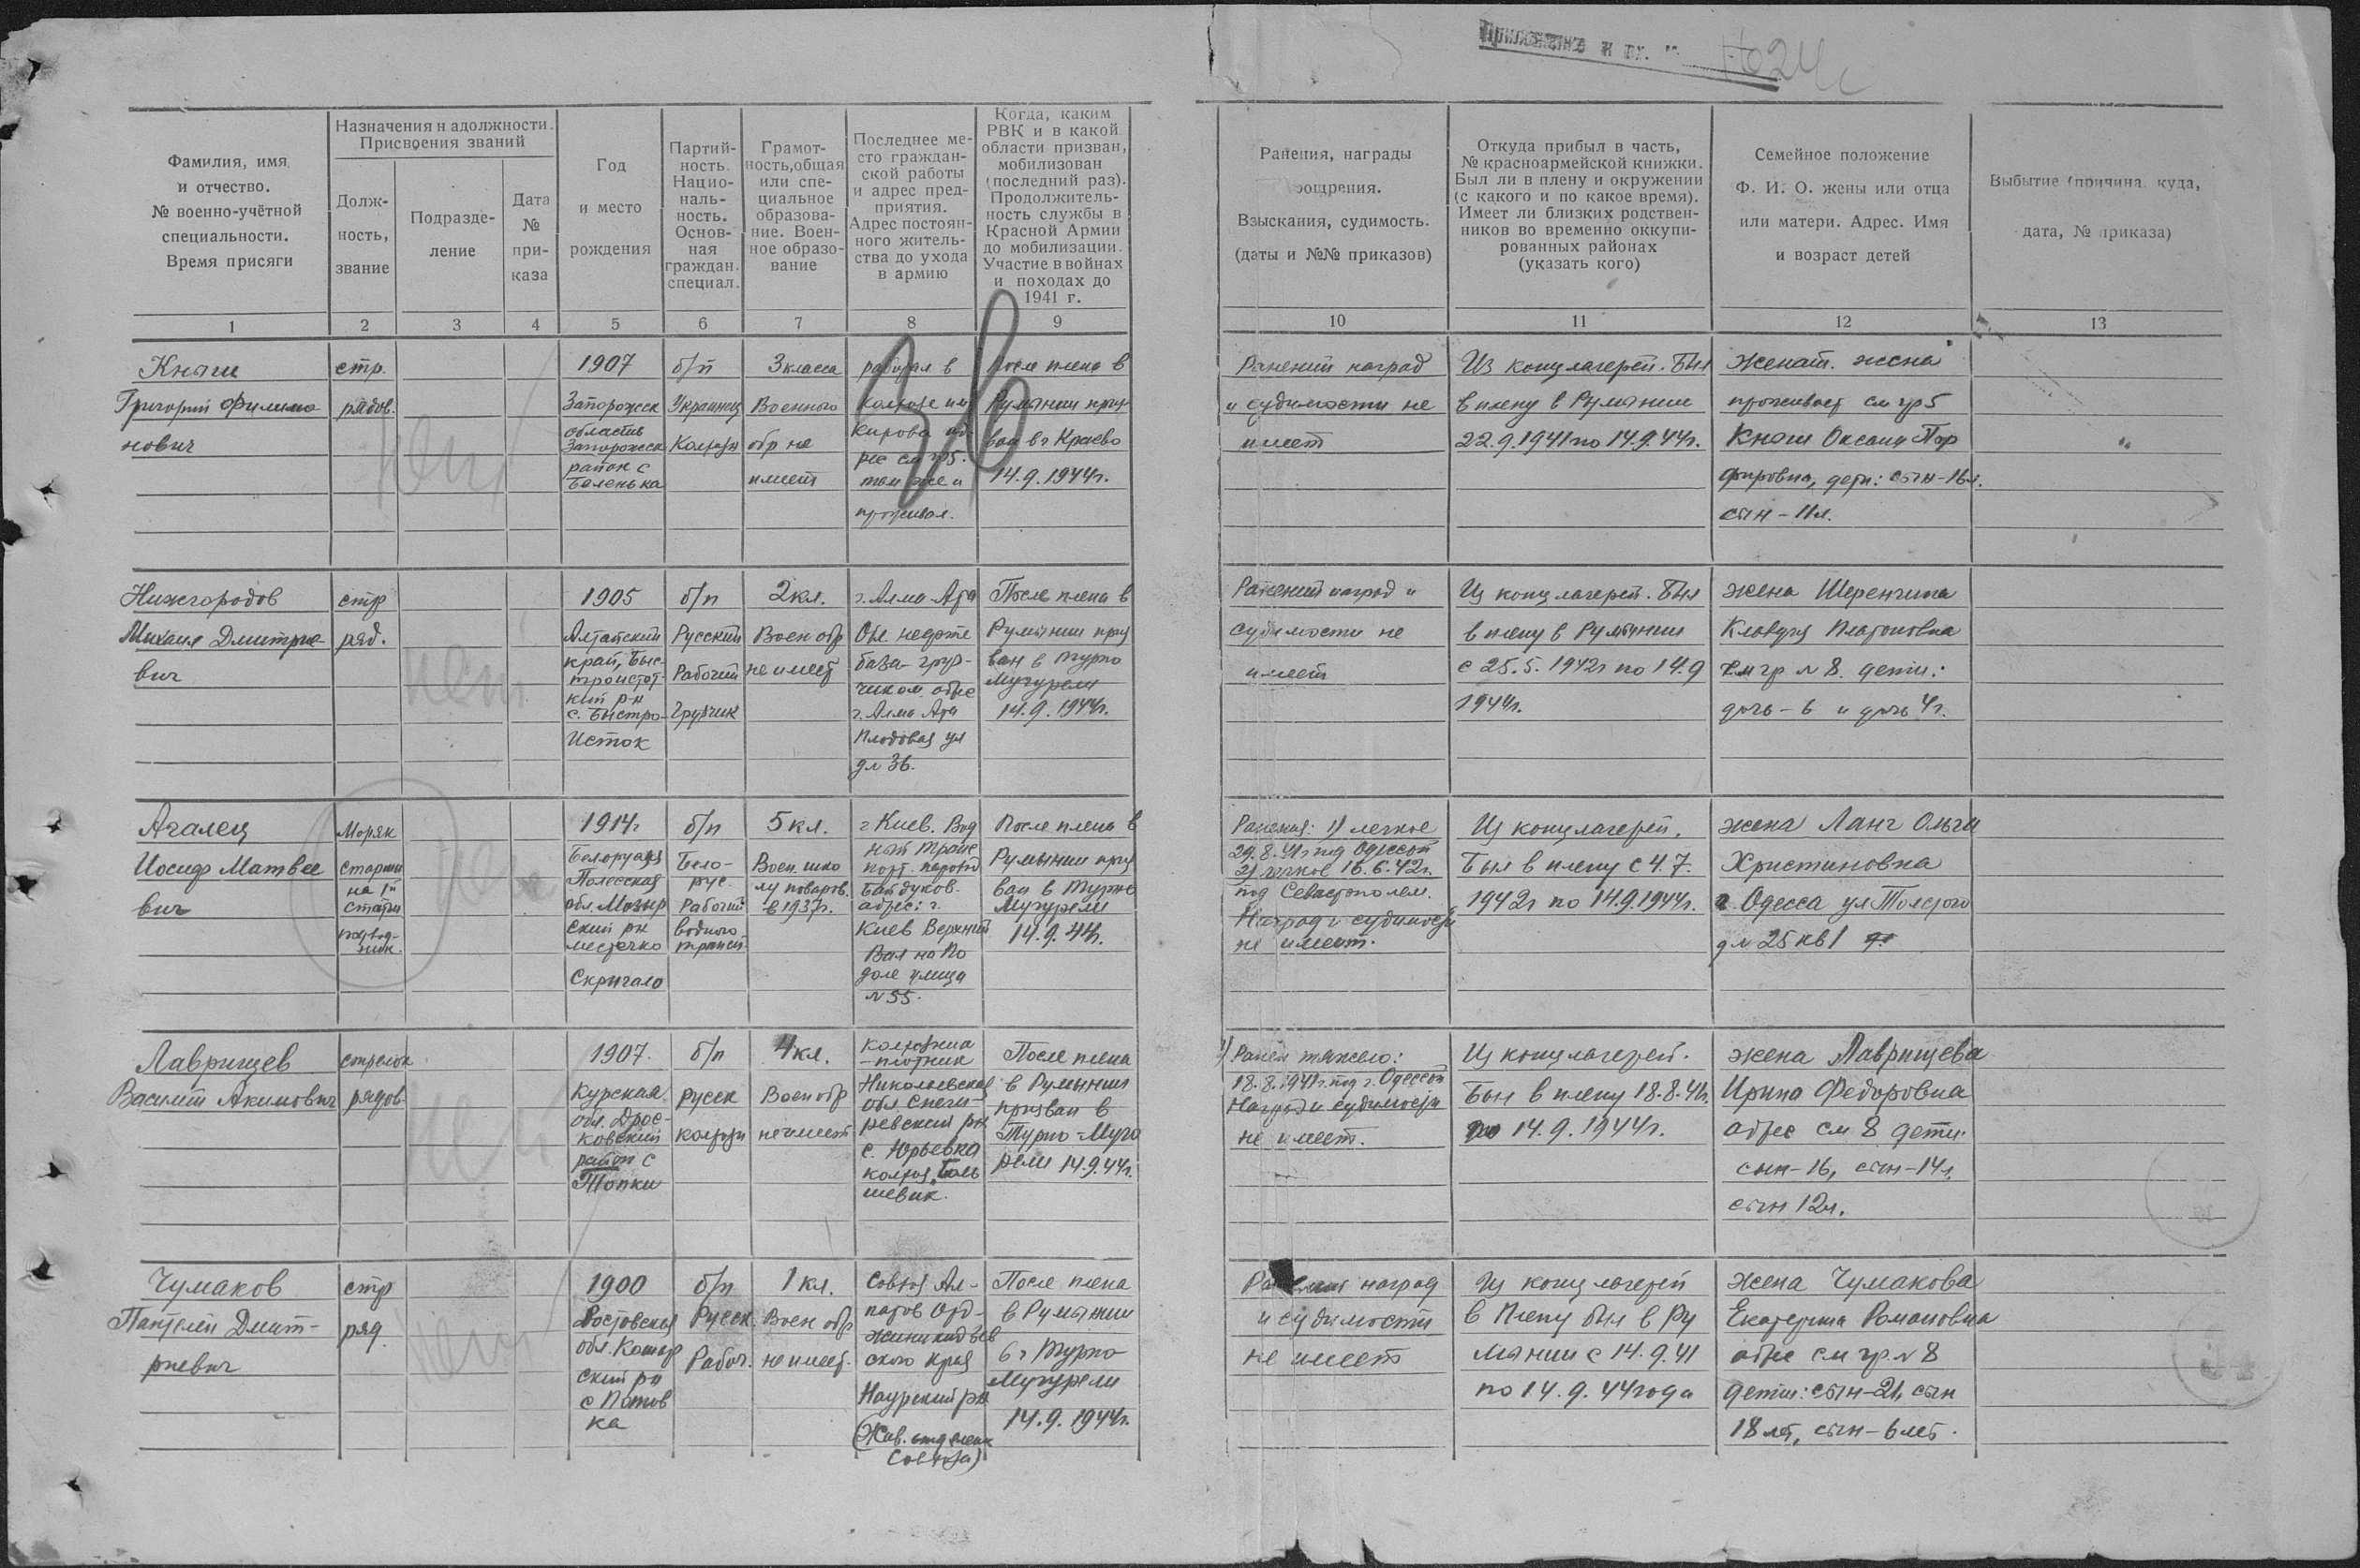 Приложение к вх. №
№ 24с
Фамилия, имя
и отчество.
№ военно-учётной
специальности.
Время присяги
Назначения н адолжности.
Присвоения званий
Долж-
ность,
звание
Подразде-
ление
Дата
№
при-
каза
Год
и место
рождения
Партий-
ность.
Нацио-
наль-
ность.
Основ-
ная
граждан.
специал.
Грамот-
ность, общая
или спе-
циальное
образова-
ние. Воен-
ное образо-
вание
Последнее ме-
сто граждан-
ской работы
и адрес пред-
приятия.
Адрес постоян-
ного житель-
ства до ухода
в армию
Когда, каким
РВК и в какой
области призван,
мобилизован
(последний раз).
Продолжитель-
ность службы в
Красной Армии
до мобилизации.
Участие в войнах
и походах до
1941 г.
Ранения, награды
поощрения.
Взыскания, судимость.
(даты и №№ приказов)
Откуда прибыл в часть,
№ красноармейской книжки.
Был ли в плену и окружении
(с какого и по какое время).
Имеет ли близких родствен-
ников во временно оккупи-
рованных районах
(указать кого)
Семейное положение
Ф. И. О. жены или отца
или матери. Адрес. Имя
и возраст детей
Выбытие (причина, куда,
дата, № приказа)
1 2 3 4 5 6 7 8 9 10 11 12 13
Княш
Григорий Филимо
нович
стр.
рядов.
нет
1907
Запорожск
область
Запорожск
район с
Беленька
б/п
Украинец
Колхозн
3 класса
Военного
обр не
имеет
работал в
колхозе им
Кирова ад-
рес см гр5.
там же и
проживал.
После плена в
Румынии приз
ван в г Краево
14.9.1944г.
Ранений наград
и судимости не
имеет
Из концлагерей. Был
в плену в Румынии
22.9.1941 по 14.9.44г.
Женат. жена
проживает см гр5
Княш Оксана Пор
фировна, дети: сын-16л.
сын-11л.
Нижегородов
Михаил Дмитрие-
вич
стр
ряд.
нет
1905
Алтайский
край, Быс-
троисток-
кий р-н
с. Быстро-
Исток
б/п
Русский
Рабочий
Грузчик
2 кл.
Воен обр
не имеет
г. Алма Ата
Обл нефте
база-груз-
чиком адрес
г. Алма Ата
Плодовая ул
д № 36.
После плена в
Румынии приз
ван в Турно
Мугурели
14.9.1944г.
Ранений наград и
судимости не
имеет
Из концлагерей. Был
в плену в Румынии
с 25.5.1942г по 14.9
1944г.
жена Шеренгина
Клавдия Платоновна
см гр № 8. дети:
дочь-6 и дочь 4г.
Агалец
Иосиф Матвее
вич
Моряк
старши
на 1й
статьи
подвод-
ник.
1914г
Белоруссия
Полесская
обл. Мозыр
ский рн
местечко
Скригало
б/п
Бело-
рус.
Рабочий
водного
трансп.
5 кл.
Воен. шко
лу поваров.
в 1937г.
г Киев. Вод
ный транс
порт. пароход
Байдуков.
адрес: г.
Киев Верхний
Вал на По
доле улица
№ 55.
После плена в
Румынии приз
ван в Турно
Мугурели
14.9.44г.
Ранения: 1) легкое
29.8.41г под Одессой
2) легкое 16.6.42г.
под Севастополем.
Наград и судимости
не имеет.
Из концлагерей.
Был в плену с 4.7.
1942г по 14.9.1944г.
жена Ланг Ольга
Христиновна
г. Одесса ул Толстого
д № 25 кв 1
Лаврищев
Василий Акимович
стрелок
рядов
нет
1907.
Курская
обл. Дрос-
ковский
район с
Топки
б/п
русск
колхозн
4 кл.
Воен обр
не имеет
колхозник
-плотник
Николаевская
обл. Снеги-
ревский рн
с. Юрьевка
колхоз „Боль
шевик.
После плена
в Румынии
призван в
Турно-Мугу
рели 14.9.44г.
1) Ранен тяжело:
18.8.1941г. под г. Одессой
Наград и судимости
не имеет.
Из концлагерей.
Был в плену 18.8.41г.
по 14.9.1944г.
жена Лаврищева
Ирина Федоровна
адрес см 8 дети:
сын-16, сын-14л,
сын 12л.
Чумаков
Пантелей Дмит-
риевич
стр
ряд
нет
1900
Ростовская
обл. Кошар
ский рн
с Попов
ка
б/п
Русск.
Рабоч.
1 кл.
Воен обр
не имеет.
Совхоз Ал-
патов Орд-
жоникидзев
ского края
Наурский рн
(Жив. отделение
Совхоза)
После плена
в Румынии
в г Турно
Мугурели
14.9.1944г.
Ранений наград
и судимости
не имеет
Из концлагерей
в плену был в Ру
мынии с 14.9.41
по 14.9.44 года
жена Чумакова
Екатерина Романовна
адрес см гр. № 8
дети: сын-21, сын
18 лет, сын-6 лет.